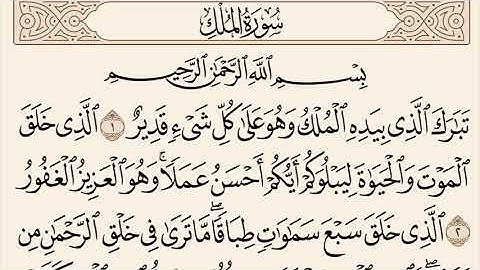 سُورَةُ الْمُلْكِ
بِسْمِ اللَّهِ الرَّحْمَٰنِ الرَّحِيمِ
تَبَارَكَ الَّذِي بِيَدِهِ الْمُلْكُ وَهُوَ عَلَىٰ كُلِّ شَيْءٍ قَدِيرٌ ١ الَّذِي خَلَقَ
الْمَوْتَ وَالْحَيَوٰةَ لِيَبْلُوَكُمْ أَيُّكُمْ أَحْسَنُ عَمَلًا ۚ وَهُوَ الْعَزِيزُ الْغَفُورُ
٢ الَّذِي خَلَقَ سَبْعَ سَمَٰوَٰتٍ طِبَاقًا ۖ مَّا تَرَىٰ فِي خَلْقِ الرَّحْمَٰنِ مِن